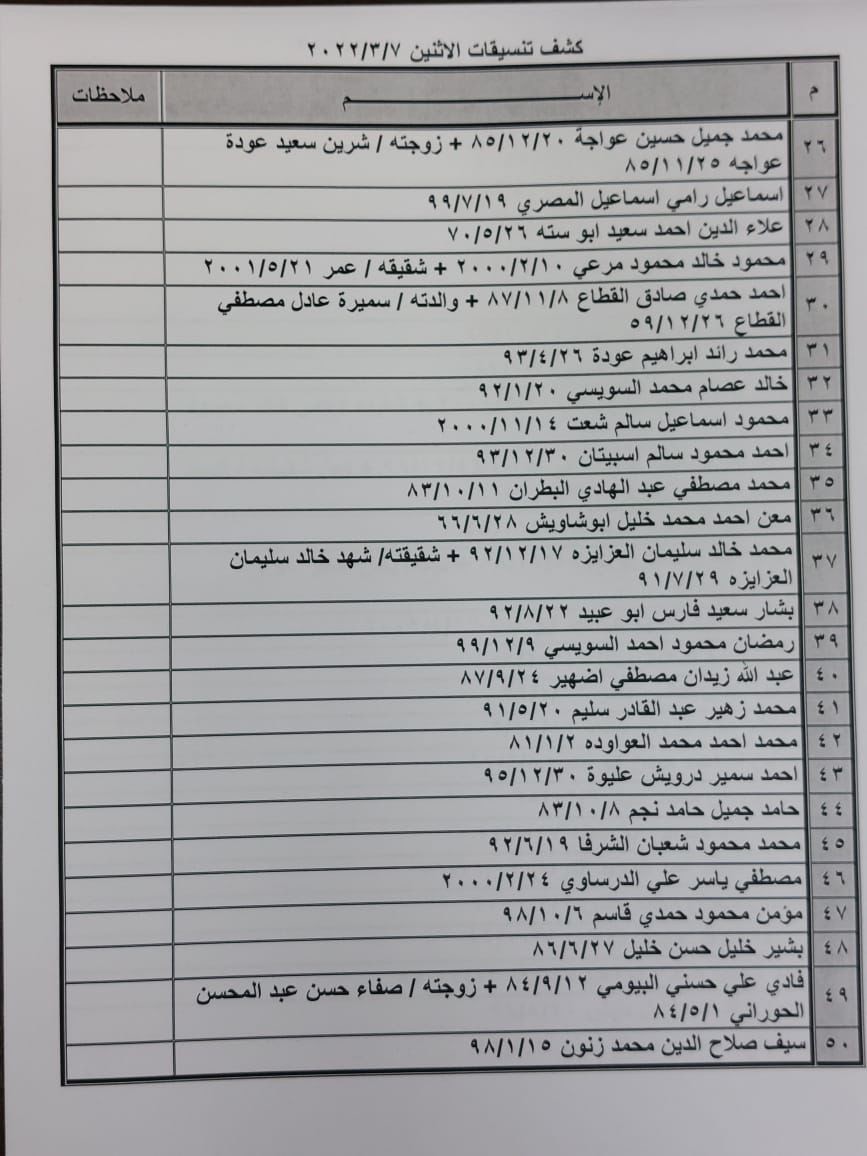 كشف تنسيقات الاثنين ٢٠٢٢/٣/٧
م الإســــــــم ملاحظات
٢٦ محمد جميل حسين عواجة ٨٥/١٢/٢٠ + زوجته / شرين سعيد عودة
عواجه ٨٥/١١/٢٥
٢٧ اسماعيل رامي اسماعيل المصري ٩٩/٧/١٩
٢٨ علاء الدين احمد سعيد ابو سته ٧٠/٥/٢٦
٢٩ محمود خالد محمود مرعي ٢٠٠٠/٢/١٠ + شقيقه / عمر ٢٠٠١/٥/٢١
٣٠ احمد حمدي صادق القطاع ٨٧/١١/٨ + والدته / سميرة عادل مصطفي
القطاع ٥٩/١٢/٢٦
٣١ محمد رائد ابراهيم عودة ٩٣/٤/٢٦
٣٢ خالد عصام محمد السويسي ٩٢/١/٢٠
٣٣ محمود اسماعيل سالم شعت ٢٠٠٠/١١/١٤
٣٤ احمد محمود سالم اسبيتان ٩٣/١٢/٣٠
٣٥ محمد مصطفي عبد الهادي البطران ٨٣/١٠/١١
٣٦ معن احمد محمد خليل ابوشاويش ٦٦/٦/٢٨
٣٧ محمد خالد سليمان العزايزه ٩٢/١٢/١٧ + شقيقته/ شهد خالد سليمان
العزايزه ٩١/٧/٢٩
٣٨ بشار سعيد فارس ابو عبيد ٩٢/٨/٢٢
٣٩ رمضان محمود احمد السويسي ٩٩/١٢/٩
٤٠ عبد الله زيدان مصطفي اضهير ٨٧/٩/٢٤
٤١ محمد زهير عبد القادر سليم ٩١/٥/٢٠
٤٢ محمد احمد محمد العواوده ٨١/١/٢
٤٣ احمد سمير درويش عليوة ٩٥/١٢/٣٠
٤٤ حامد جميل حامد نجم ٨٣/١٠/٨
٤٥ محمد محمود شعبان الشرفا ٩٢/٦/١٩
٤٦ مصطفي ياسر علي الدرساوي ٢٠٠٠/٢/٢٤
٤٧ مؤمن محمود حمدي قاسم ٩٨/١٠/٦
٤٨ بشير خليل حسن خليل ٨٦/٦/٢٧
٤٩ فادي علي حسني البيومي ٨٤/٩/١٢ + زوجته / صفاء حسن عبد المحسن
الحوراني ٨٤/٥/١
٥٠ سيف صلاح الدين محمد زنون ٩٨/١/١٥